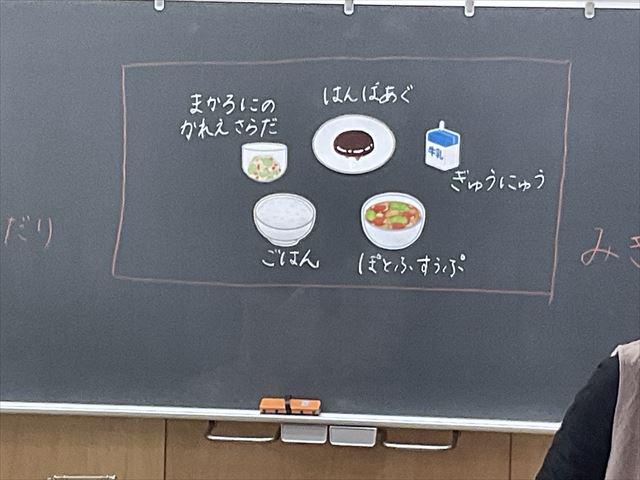 はんばあぐ
まかろにの
かれえさらだ
牛乳
ぎゅうにゅう
ごはん
ぽとふすうぷ
だり
み